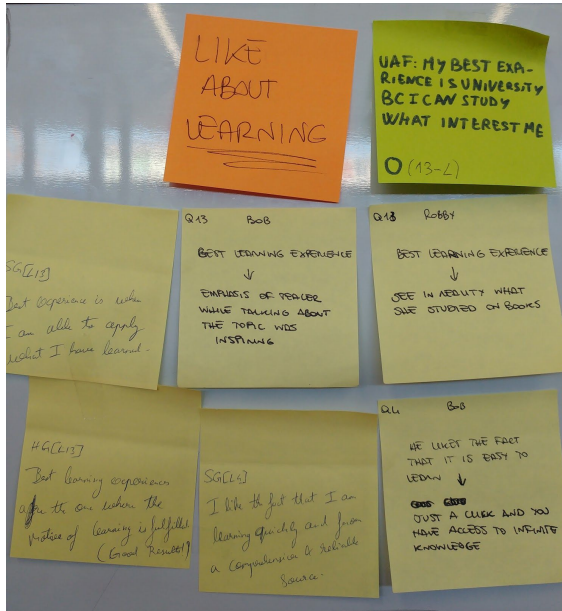 LIKE
ABOUT
LEARNING
UAF: MY BEST EXPE-
RIENCE IS UNIVERSITY
BC I CAN STUDY
WHAT INTEREST ME
O (13-L)
SG[L13]
Best experience is when
I am able to apply
what I have learned.
Q13 BOB
BEST LEARNING EXPERIENCE
↓
EMPHASIS OF
WHILE TALKING ABOUT
THE TOPIC WAS
INSPIRING
Q13 ROBBY
BEST LEARNING EXPERIENCE
↓
SEE IN REALITY WHAT
SHE STUDIED ON BOOKS
HG[L13]
Best learning experiences
are the one where the
motive of learning is fulfilled
(Good Result!)
SG[L4]
I like the fact that I am
learning quickly and from
a comprehensive & reliable
source.
Q4 BOB
HE LIKES THE FACT
THAT IT IS EASY TO
LEARN ↓
JUST A CLICK AND YOU
HAVE ACCESS TO INFINITE
KNOWLEDGE